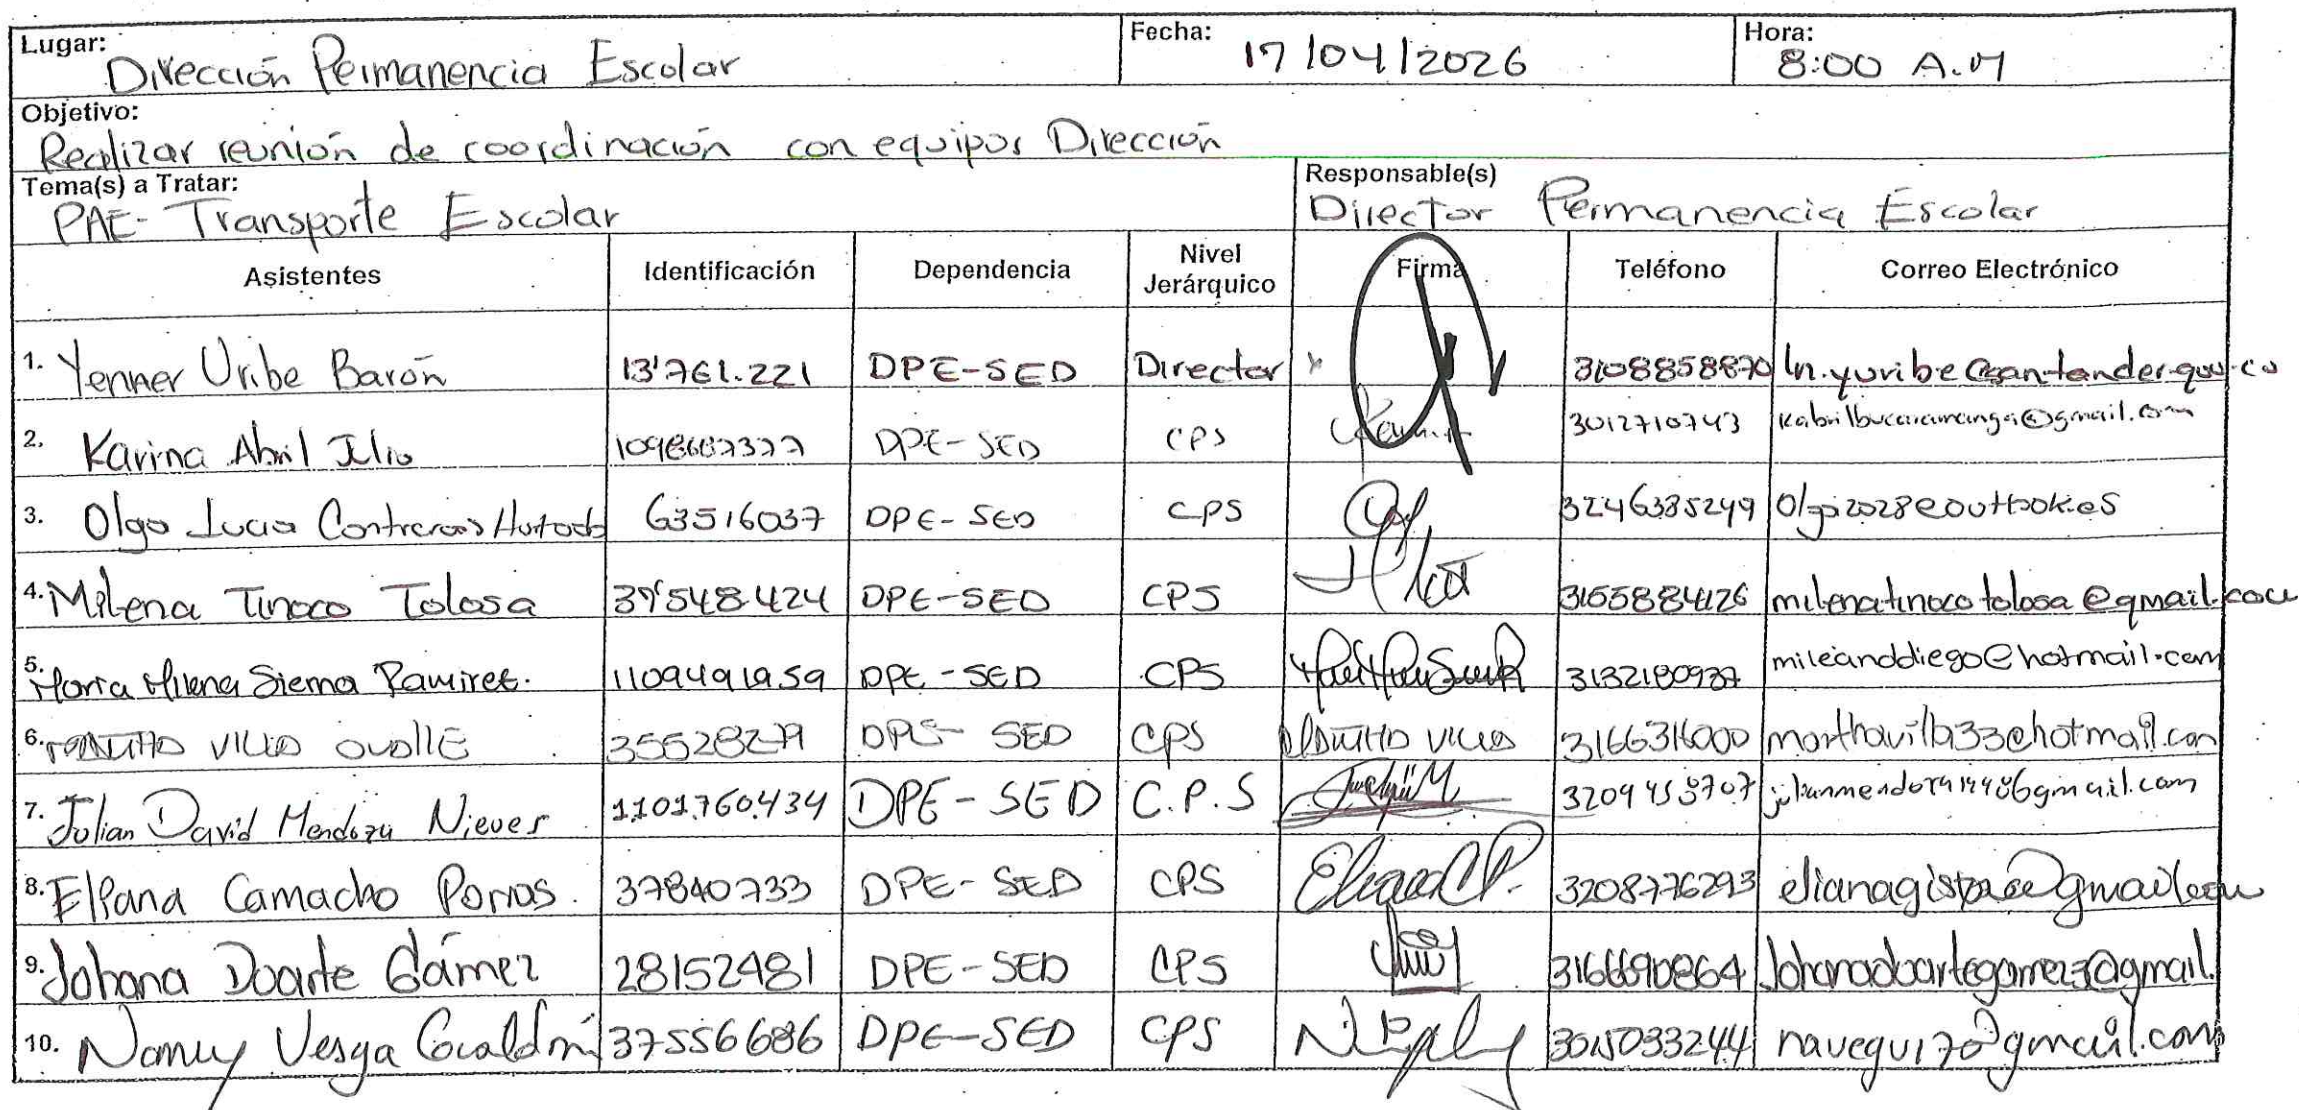 Lugar: Dirección Permanencia Escolar Fecha: 17/04/2026 Hora: 8:00 A.M
Objetivo:
Realizar reunión de coordinación con equipos Dirección
Tema(s) a Tratar: Responsable(s)
PAE-Transporte Escolar Director Permanencia Escolar
Asistentes Identificación Dependencia Nivel Jerárquico Firma Teléfono Correo Electrónico
1. Yenner Uribe Barón 13'761.221 DPE-SED Director 3108858870 ln.yuribe@santander.gov.co
2. Karina Abril Julio DPE-SED CPS 3012710743 kabrilbucaramanga@gmail.com
3. Olga Lucia Contreras Hurtado 63516037 DPE-SED CPS 3246385249 Olga2028@outlook.es
4. Milena Tinoco Tolosa 37'548.424 DPE-SED CPS 3155884126 milenatinocotolosa@gmail.com
5. Maria Milena Sierra Ramirez. 1109491959 DPE-SED CPS 3132180937 mileanddiego@hotmail.com
6. Villa Ovalle 35528279 DPE-SED CPS Villa 3166316000 marthavilla33@hotmail.com
7. Julian David Mendoza Nieves 1.101.760.434 DPE-SED C.P.S
8. Eliana Camacho Porras. 37840733 DPE-SED CPS Eliana C.P. 3208776293
9. Johana Duarte Gámez 28152481 DPE-SED CPS 3166690864 Johanaduartegamez3@gmail.
10. Vesga 37556686 DPE-SED CPS 3015033244 navegui70@gmail.com